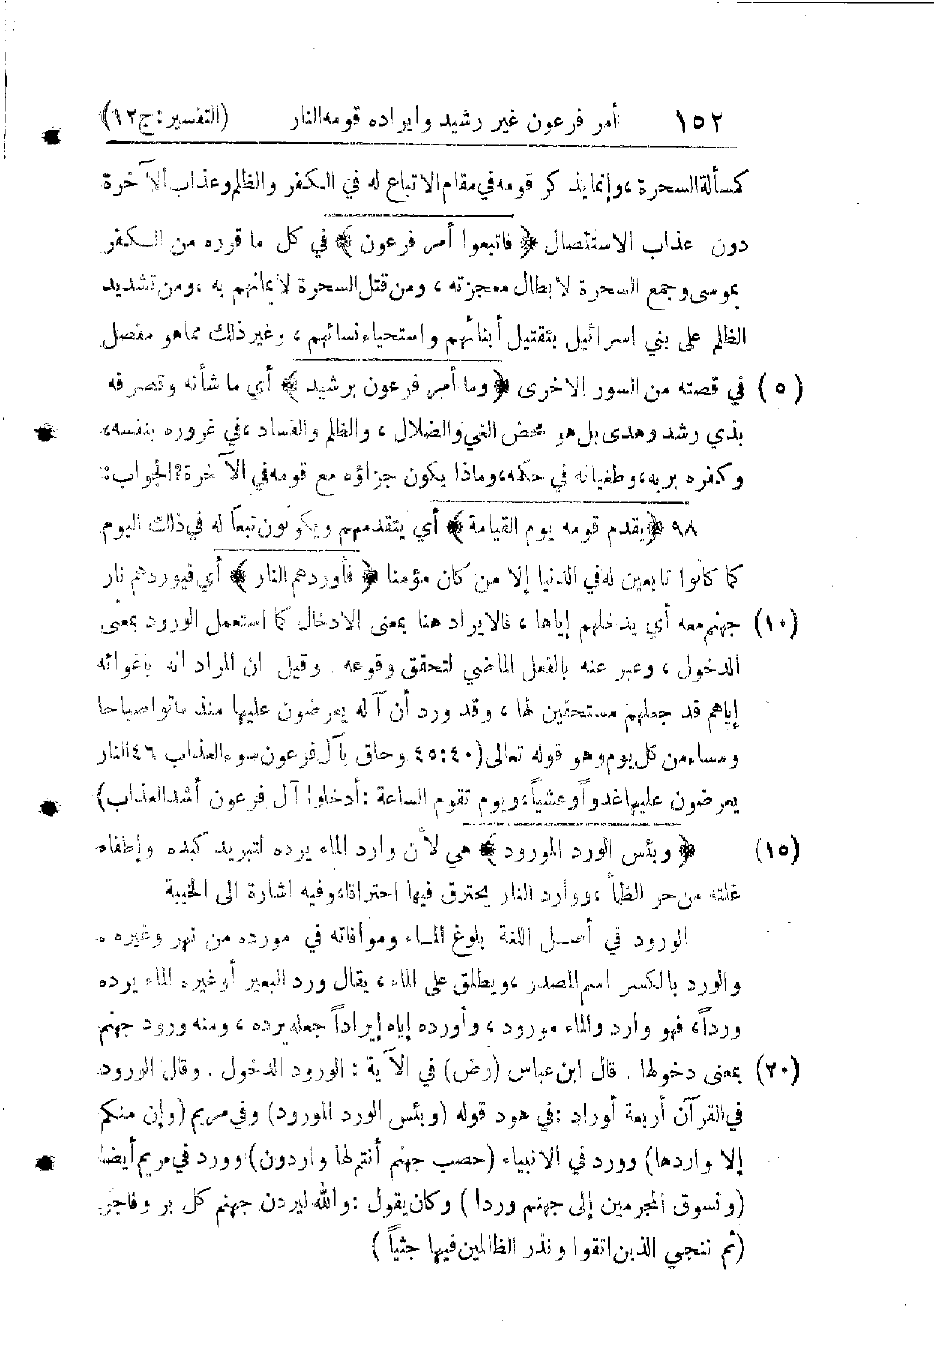 ١٥٢ أمر فرعون غير رشيد وايراده قومه النار (التفسير: ج١٢)
كمسألة السحرة ، وإنما يذكر قومه في مقام الاتباع له في الكفر والظلم وعذاب الآخرة
دون عذاب الاستئصال ﴿ فاتبعوا أمر فرعون ﴾ في كل ما قرره من الكفر
بموسى وجمع السحرة لابطال معجزته ، ومن قتل السحرة لايمانهم به ، ومن تشديد
الظلم على بني اسرائيل بتقتيل أبنائهم واستحياء نسائهم ، وغير ذلك مما هو مفصل
(٥) في قصته من السور الاخرى ﴿ وما أمر فرعون برشيد ﴾ أي ما شأنه وتصرفه
بذي رشد وهدى بل هو محض الغي والضلال ، والظلم والفساد ، في غروره بنفسه،
وكفره بربه، وطغيانه في حكمه، وماذا يكون جزاؤه مع قومه في الآخرة؟ الجواب:
٩٨ ﴿ يقدم قومه يوم القيامة ﴾ أي يتقدمهم ويكونون تبعاً له في ذلك اليوم
كما كانوا تابعين له في الدنيا إلا من كان مؤمنا ﴿ فأوردهم النار ﴾ أي فيوردهم نار
(١٠) جهنم معه أي يدخلهم إياها ، فالايراد هنا بمعنى الادخال كما استعمل الورود بمعنى
الدخول ، وعبر عنه بالفعل الماضي لتحقق وقوعه . وقيل ان المراد انه باغوائه
إياهم قد جعلهم مستحقين لها ، وقد ورد أن آله يعرضون عليها منذ ماتوا صباحا
ومساء من كل يوم وهو قوله تعالى (٤٠:٤٥ وحاق بآل فرعون سوء العذاب ٤٦ النار
يعرضون عليها غدواً وعشياً، ويوم تقوم الساعة : أدخلوا آل فرعون أشد العذاب)
(١٥) ﴿ وبئس الورد المورود ﴾ هي لأن وارد الماء يرده لتبريد كبده وإطفاء
غلته من حر الظمأ ، ووارد النار يحترق فيها احتراقا، وفيه اشارة الى الخيبة
الورود في أصل اللغة بلوغ الماء وموافاته في مورده من نهر وغيره .
والورد بالكسر اسم المصدر ، ويطلق على الماء ، يقال ورد البعير أو غيره الماء يرده
ورداً، فهو وارد والماء مورود ، وأورده إياه إيراداً جعله يرده ، ومنه ورود جهنم
(٢٠) بمعنى دخولها . قال ابن عباس (رض) في الآية : الورود الدخول . وقال الورود
في القرآن أربعة أوراد : في هود قوله (وبئس الورد المورود) وفي مريم (وإن منكم
إلا واردها) وورد في الانبياء (حصب جهنم أنتم لها واردون) وورد في مريم أيضا
(ونسوق المجرمين إلى جهنم وردا ) وكان يقول : والله ليردن جهنم كل بر وفاجر
(ثم ننجي الذين اتقوا ونذر الظالمين فيها جثياً )